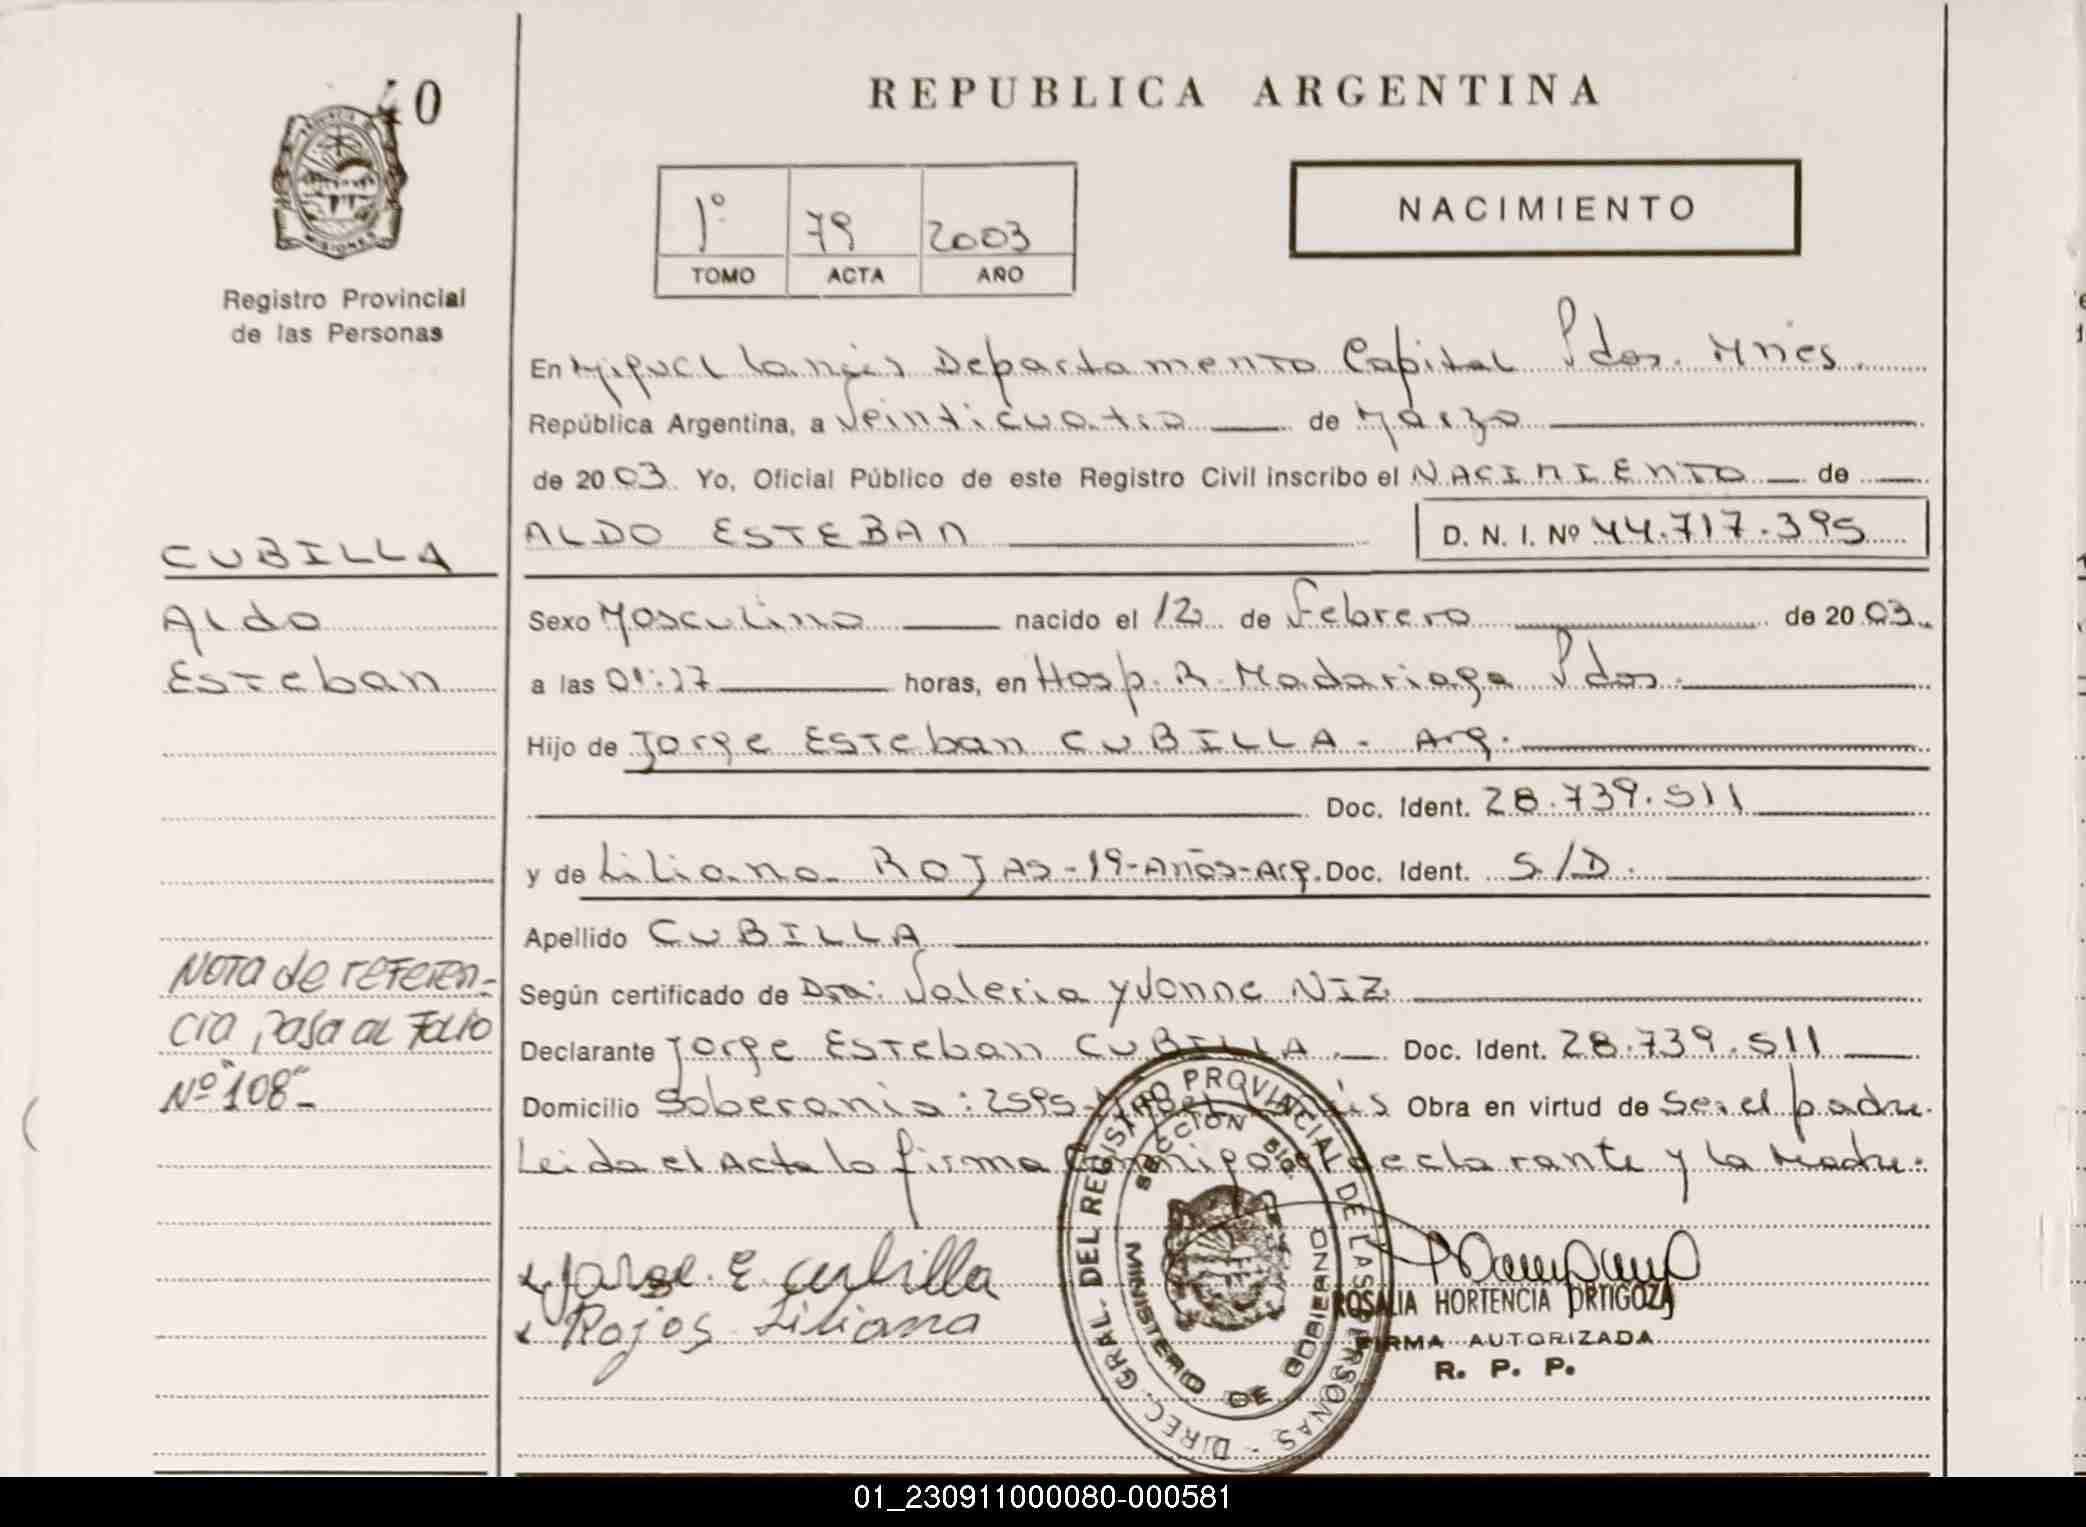 40
REPUBLICA ARGENTINA
1º 79 2003
TOMO ACTA AÑO
NACIMIENTO
MISIONES
Registro Provincial
de las Personas
En Miguel Lanús Departamento Capital Pdos. Mnes.
República Argentina, a Veinticuatro de Marzo
de 2003. Yo, Oficial Público de este Registro Civil inscribo el NACIMIENTO de
ALDO ESTEBAN D. N. I. Nº 44.717.395
CUBILLA
Aldo
Esteban
Sexo Masculino nacido el 12 de Febrero de 2003.
a las horas, en Hosp. R. Madariaga Pdos.
Hijo de Jorge Esteban CUBILLA. Arg.
Doc. Ident. 28.739.511
y de Liliana ROJAS-19-Años-Arg. Doc. Ident. S/D.
Apellido CUBILLA
Según certificado de Dra: Valeria Yvonne NIZ
Declarante Jorge Esteban CUBILLA. Doc. Ident. 28.739.511
Domicilio Soberania: 2595- Obra en virtud de Ser el padre.
Leida el Acta la firma declarante y la Madre.
NOTA de referen-
cia pasa al Folio
Nº "108"-
Jorge. E. cubilla
Rojas Liliana
DIREC. GRAL. DEL REGISTRO PROVINCIAL DE LAS PERSONAS
SECCION
MINISTERIO DE GOBIERNO
ROSALIA HORTENCIA ORTIGOZA
FIRMA AUTORIZADA
R. P. P.
01_230911000080-000581